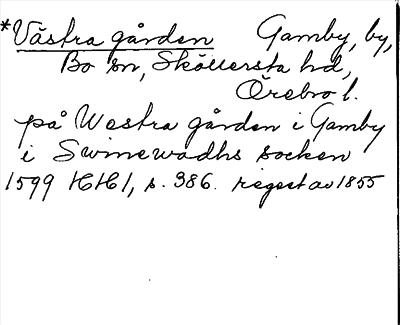 *Västra gården Gamby, by,
Bo sn, Sköllersta hd,
Örebro l.
på Westra gården i Gamby
i Swinewadhs socken
1599 HH 1, s. 386. regest av 1855